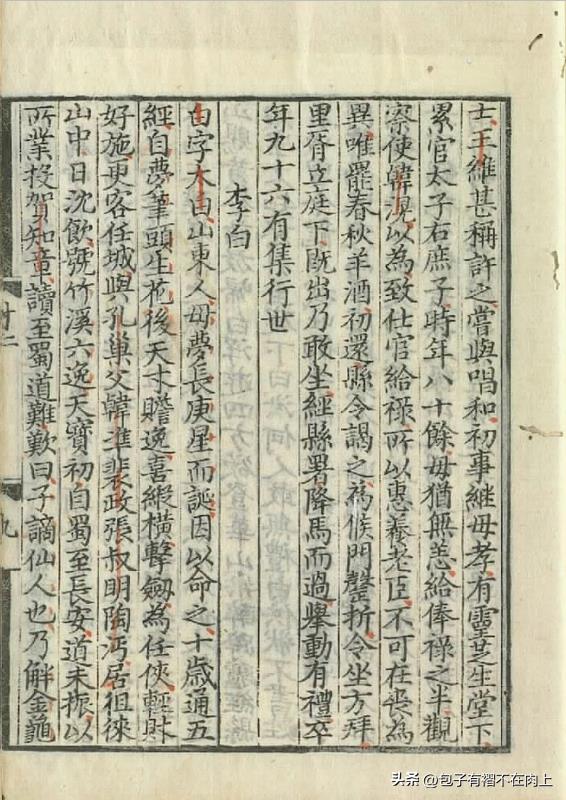 士王維甚稱許之嘗與唱和初事継母孝有靈芝生堂下
累官太子右庶子時年八十餘毋猶無恙給俸禄之半觀
察使韓滉以為致仕官給禄所以惠養老臣不可在喪為
異唯罷春秋羊酒初還縣令謁之為候門罄折令坐方拜
里胥立庭下既出乃敢坐經縣署降馬而過舉動有禮卒
年九十六有集行世
李白
白字太白山東人毋夢長庚星而誕因以命之十歳通五
經自夢筆頭生花後天才贍逸喜縦横擊劒為任俠輕財
好施更客任城與孔巢父韓準裴政張叔明陶沔居徂徠
山中日沈飲號竹溪六逸天寶初自蜀至長安道未振以
所業投賀知章讀至蜀道難歎曰子謫仙人也乃解金龜
才二
九
头条 @包子有褶不在肉上